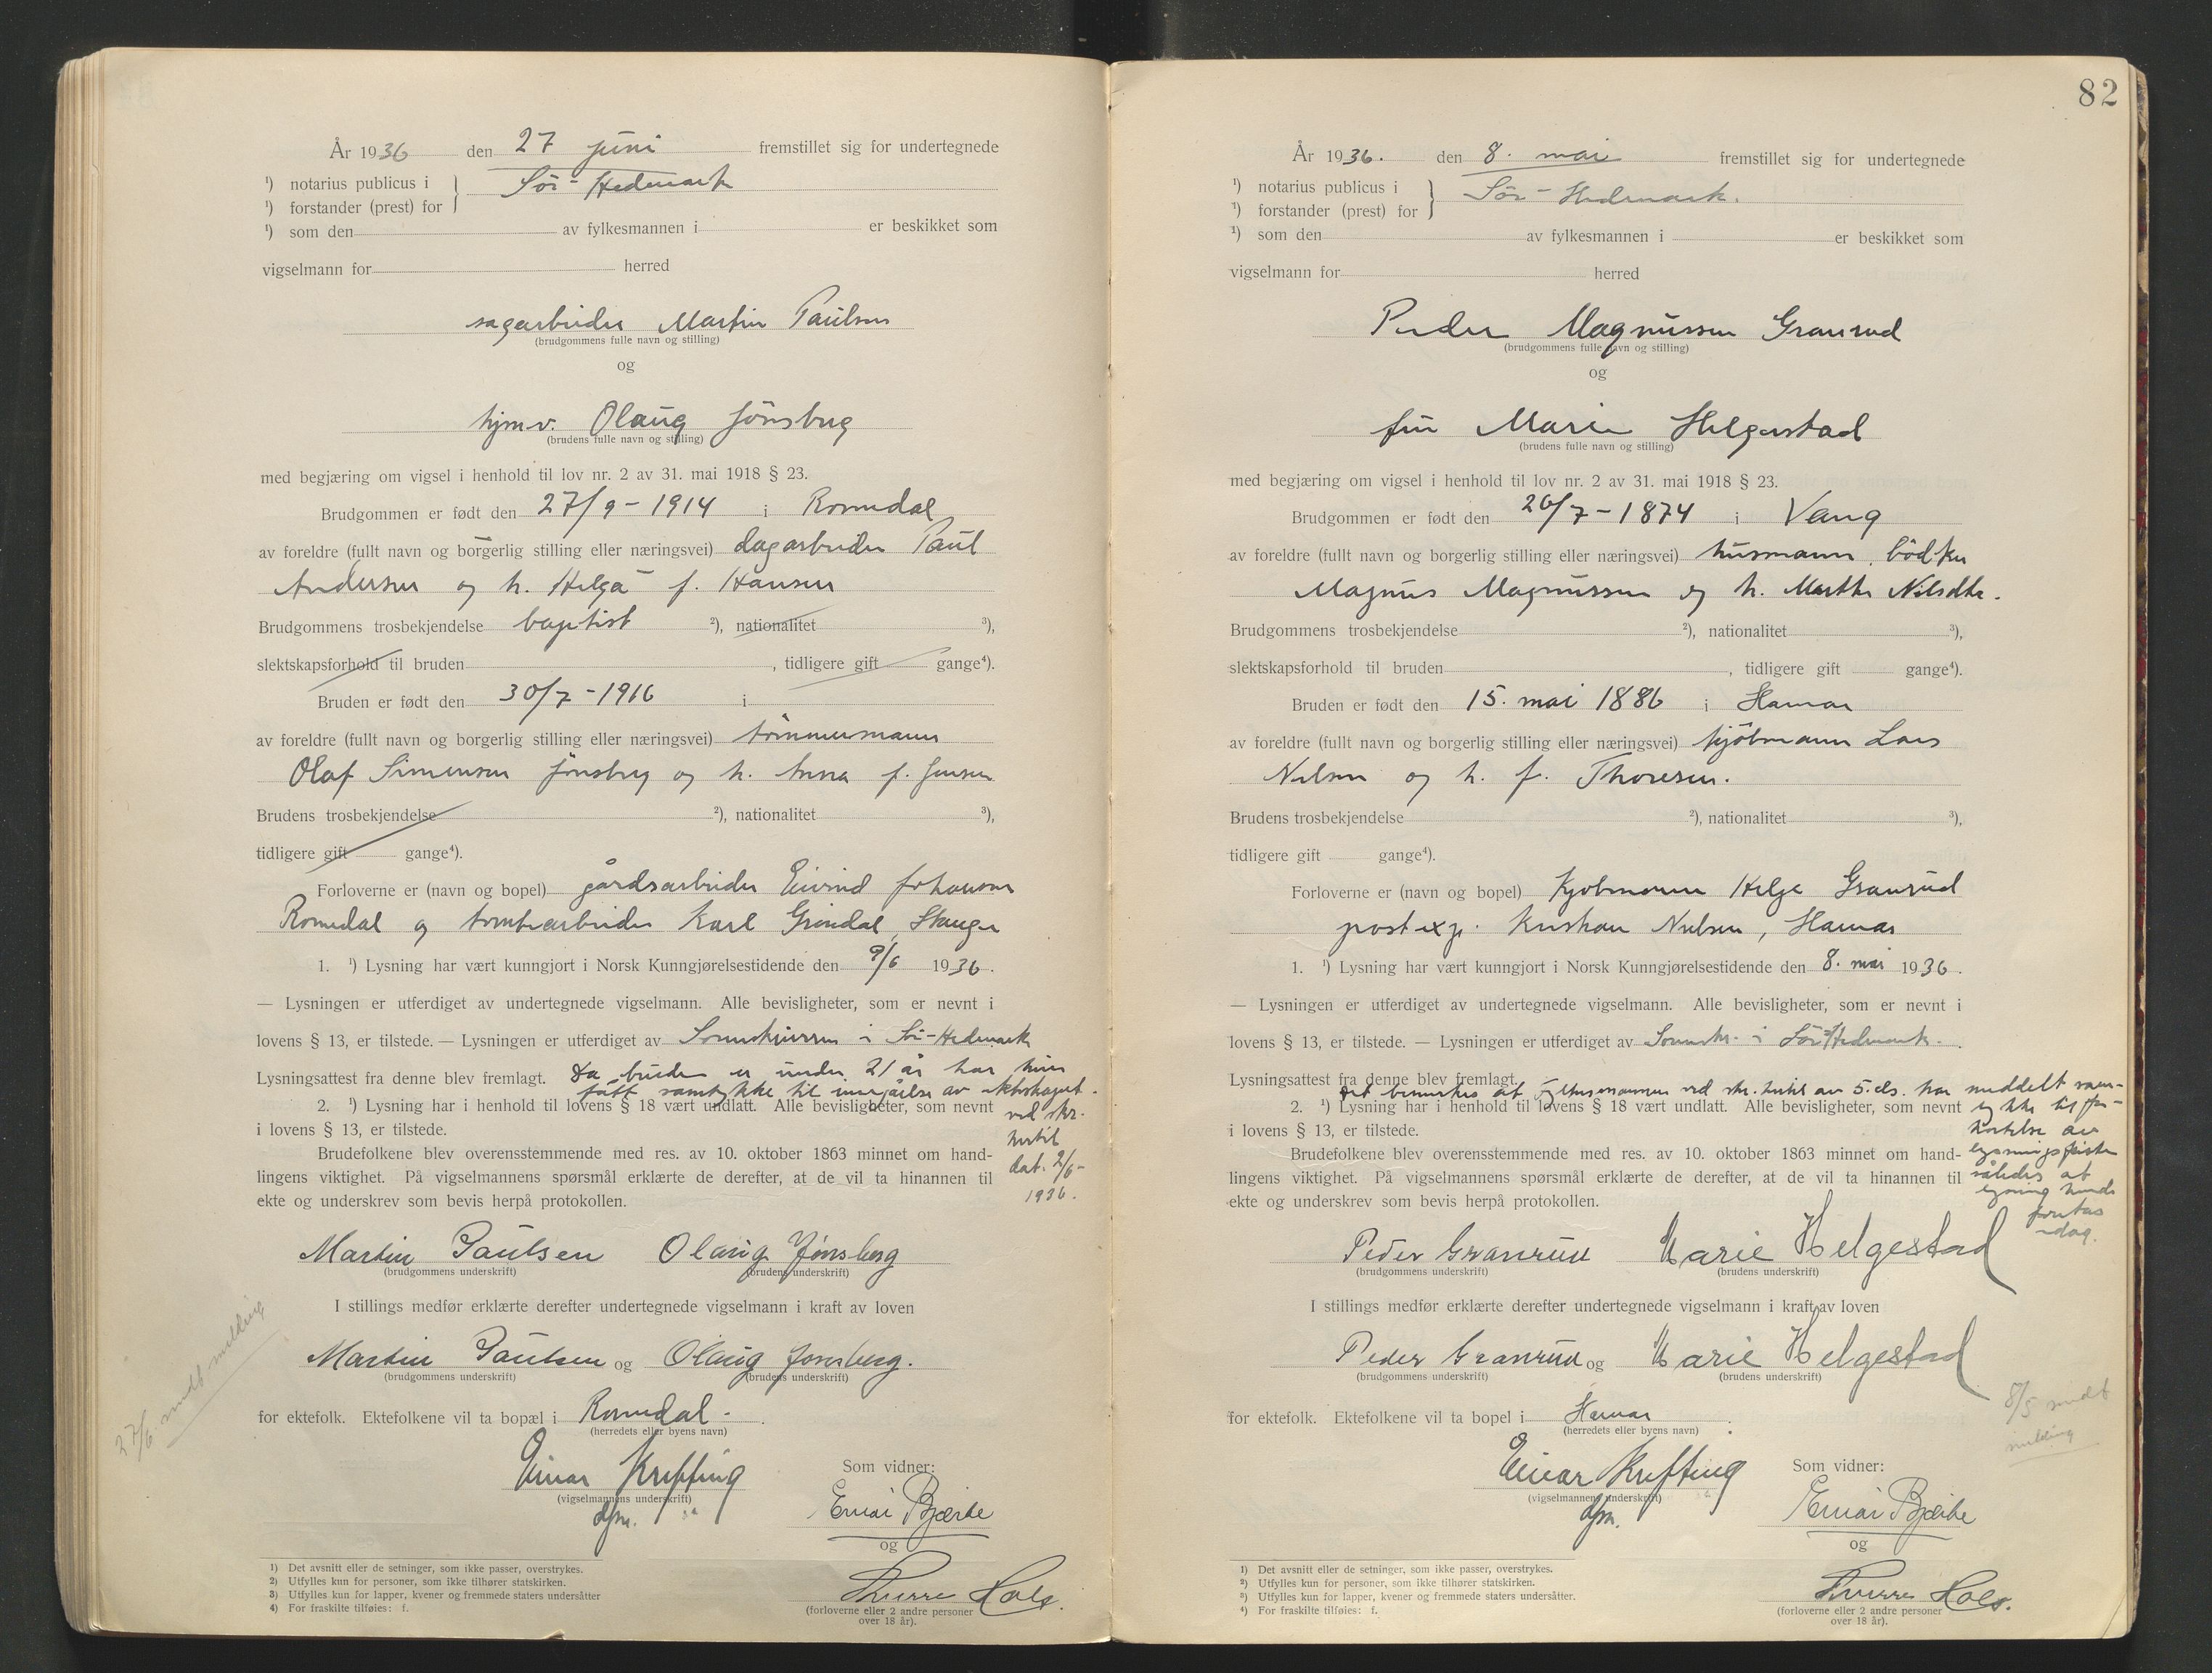 År 1936 den 27 juni fremstillet sig for undertegnede
¹) notarius publicus i } Sör-Hedemark
¹) forstander (prest) for
¹) som den av fylkesmannen i er beskikket som
vigselmann for herred
sagarbeider Martin Paulsen
(brudgommens fulle navn og stilling)
og
hjm.v. Olaug Jönsberg
(brudens fulle navn og stilling)
med begjæring om vigsel i henhold til lov nr. 2 av 31. mai 1918 § 23.
Brudgommen er født den 27/9-1914 i Romedal
av foreldre (fullt navn og borgerlig stilling eller næringsvei) dagarbeider Paul
Andersen og h. Helga f. Hansen
Brudgommens trosbekjendelse baptist ²), nationalitet ³),
slektskapsforhold til bruden , tidligere gift gange⁴).
Bruden er født den 30/7-1916 i
av foreldre (fullt navn og borgerlig stilling eller næringsvei) tömmermann
Olaf Simensen Jönsberg og h. Anna f. Jensen
Brudens trosbekjendelse ²), nationalitet ³),
tidligere gift gange⁴).
Forloverne er (navn og bopel) gårdsarbeider Eivind Johansen
Romedal og tomtearbeider Karl Gröndal, Stange
1. ¹) Lysning har vært kunngjort i Norsk Kunngjørelsestidende den 9/6 1936.
— Lysningen er utferdiget av undertegnede vigselmann. Alle bevisligheter, som er nevnt i
lovens § 13, er tilstede. — Lysningen er utferdiget av Sorenskriveren i Sör-Hedemark
Lysningsattest fra denne blev fremlagt. Da bruden er under 21 år har hun
fått samtykke til inngåelse av ekteskapet
2. ¹) Lysning har i henhold til lovens § 18 vært undlatt. Alle bevisligheter, som nevnt
ved skr.
i lovens § 13, er tilstede.
hertil
Brudefolkene blev overensstemmende med res. av 10. oktober 1863 minnet om hand-
dat. 2/6-
lingens viktighet. På vigselmannens spørsmål erklærte de derefter, at de vil ta hinannen til
1936.
ekte og underskrev som bevis herpå protokollen.
Martin Paulsen Olaug Jönsberg
(brudgommens underskrift) (brudens underskrift)
I stillings medfør erklærte derefter undertegnede vigselmann i kraft av loven
Martin Paulsen og Olaug Jønsberg.
(brudgommens underskrift) (brudens underskrift)
27/6 sendt melding
for ektefolk. Ektefolkene vil ta bopæl i Romedal.
(herredets eller byens navn)
Einar Krefting
(vigselmannens underskrift)
dfm.
Som vidner:
Einar Bjerke
og
Sverre Hals.
(forloverne eller 2 andre personer
over 18 år).
1) Det avsnitt eller de setninger, som ikke passer, overstrykes.
2) Utfylles kun for personer, som ikke tilhører statskirken.
3) Utfylles kun for lapper, kvener og fremmede staters undersåtter
4) For fraskilte tilføies: f.
82
År 1936. den 8. mai fremstillet sig for undertegnede
¹) notarius publicus i } Sör-Hedemark.
¹) forstander (prest) for
¹) som den av fylkesmannen i er beskikket som
vigselmann for herred
Peder Magnussen Granrud
(brudgommens fulle navn og stilling)
og
frü Marie Helgestad
(brudens fulle navn og stilling)
med begjæring om vigsel i henhold til lov nr. 2 av 31. mai 1918 § 23.
Brudgommen er født den 26/7-1874 i Vang
av foreldre (fullt navn og borgerlig stilling eller næringsvei) husmann, bödker
Magnus Magnussen og h. Marthe Nilsdtr.
Brudgommens trosbekjendelse ²), nationalitet ³),
slektskapsforhold til bruden , tidligere gift gange⁴).
Bruden er født den 15. mai 1886 i Hamar
av foreldre (fullt navn og borgerlig stilling eller næringsvei) kjöbmann Lars
Nilsen og h. f. Thoresen.
Brudens trosbekjendelse ²), nationalitet ³),
tidligere gift gange⁴).
Forloverne er (navn og bopel) Kjøbmann Helge Granrud
postexp. Kristian Nielsen, Hamar
1. ¹) Lysning har vært kunngjort i Norsk Kunngjørelsestidende den 8. mai 1936.
— Lysningen er utferdiget av undertegnede vigselmann. Alle bevisligheter, som er nevnt i
lovens § 13, er tilstede. — Lysningen er utferdiget av Sorenskr. i Sör-Hedemark.
Lysningsattest fra denne blev fremlagt.
Det bemerkes at fylkesmannen ved skr. hertil av 5. ds. har meddelt sam-
2. ¹) Lysning har i henhold til lovens § 18 vært undlatt. Alle bevisligheter, som nevnt
tykke til for-
i lovens § 13, er tilstede.
kortelse av
Brudefolkene blev overensstemmende med res. av 10. oktober 1863 minnet om hand-
lysningsfristen
lingens viktighet. På vigselmannens spørsmål erklærte de derefter, at de vil ta hinannen til
således at
lysning kunde
ekte og underskrev som bevis herpå protokollen.
foretas
idag.
Peder Granrud Marie Helgestad
(brudgommens underskrift) (brudens underskrift)
I stillings medfør erklærte derefter undertegnede vigselmann i kraft av loven
Peder Granrud og Marie Helgestad
(brudgommens underskrift) (brudens underskrift)
8/5 sendt
melding
for ektefolk. Ektefolkene vil ta bopel i Hamar.
(herredets eller byens navn)
Einar Krefting
(vigselmannens underskrift)
dfm.
Som vidner:
Einar Bjerke
og
Sverre Hals.
(forloverne eller 2 andre personer
over 18 år).
1) Det avsnitt eller de setninger, som ikke passer, overstrykes.
²) Utfylles kun for personer, som ikke tilhører statskirken.
³) Utfylles kun for lapper, kvener og fremmede staters undersåtter.
⁴) For fraskilte tilføies: f.